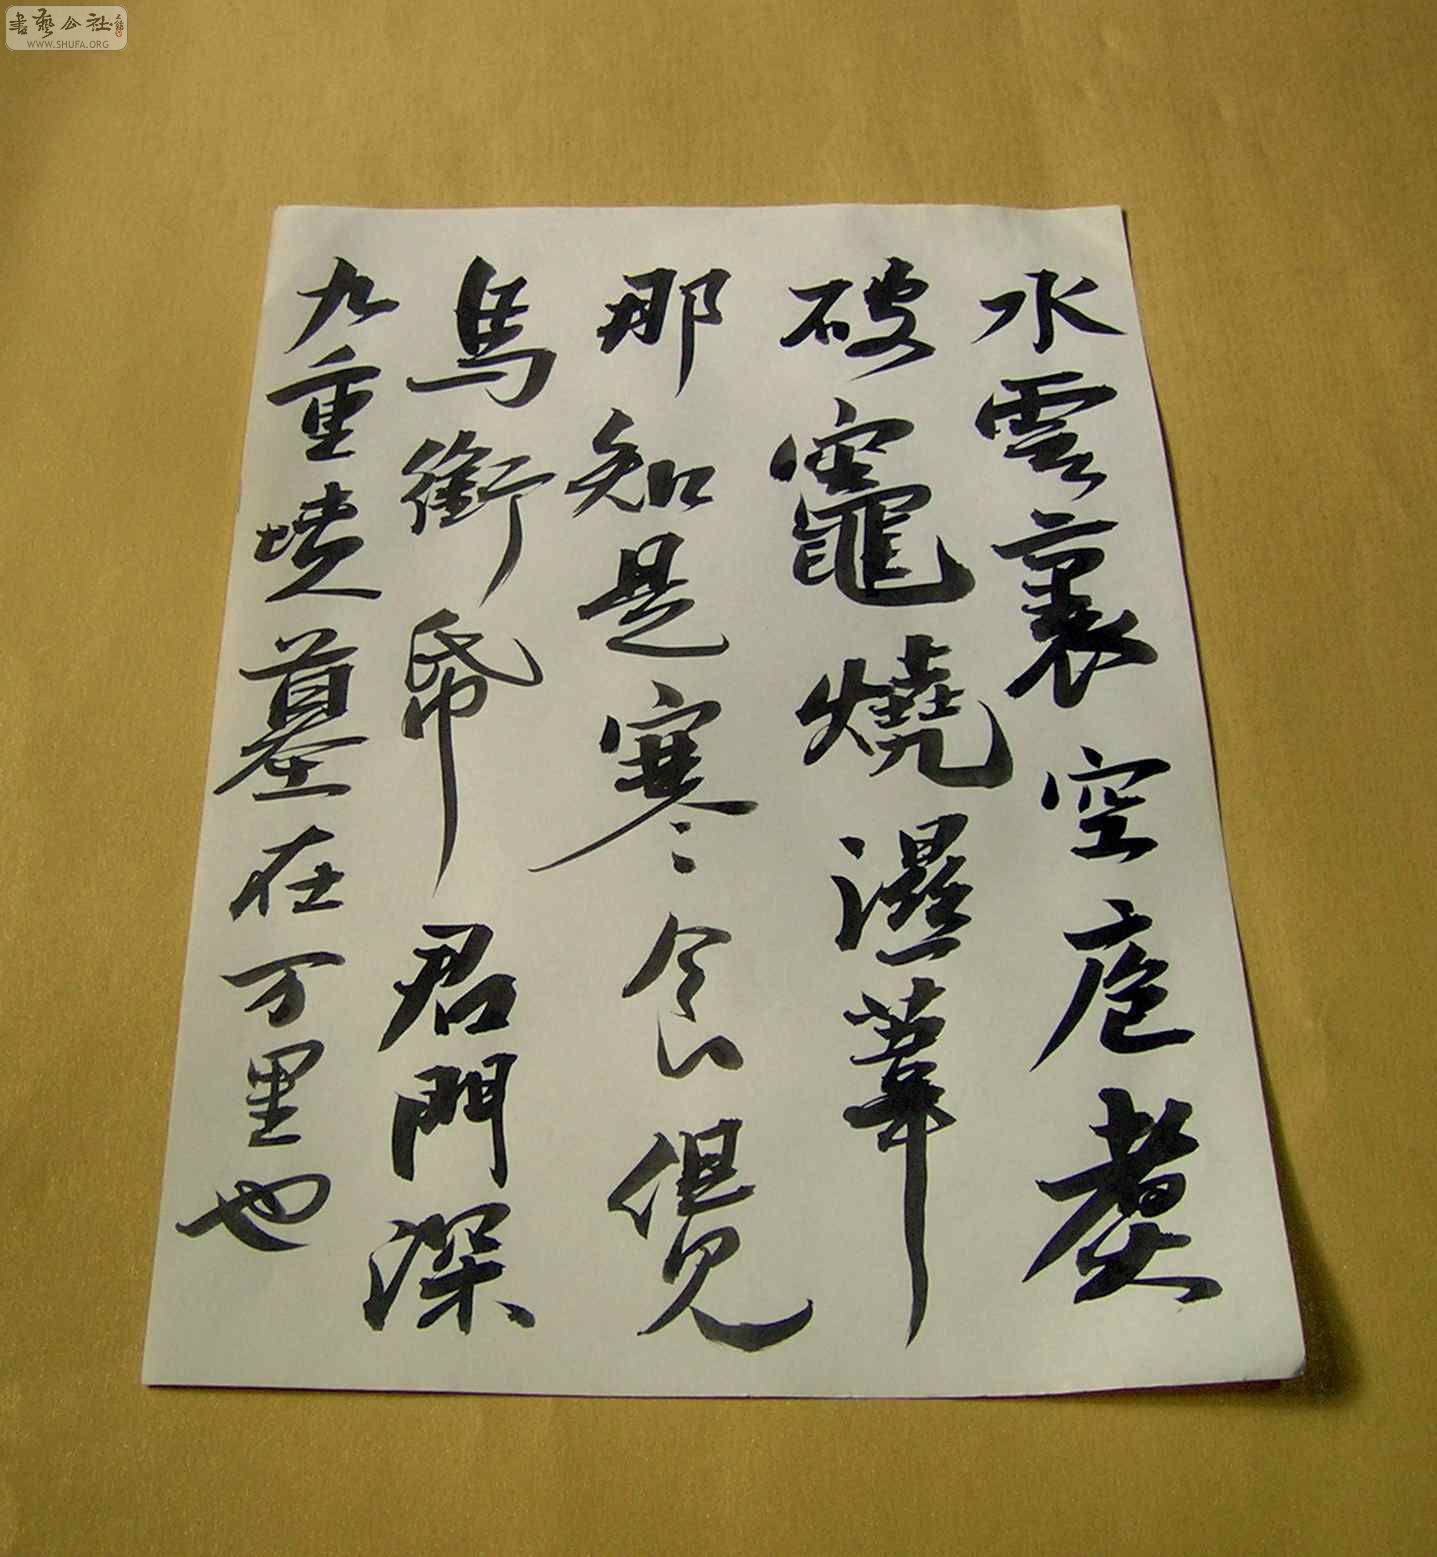 書藝公社
WWW.SHUFA.ORG
水雲裏空庖煮
破竈燒濕葦
那知是寒食但見
烏銜帋君門深
九重墳墓在万里也